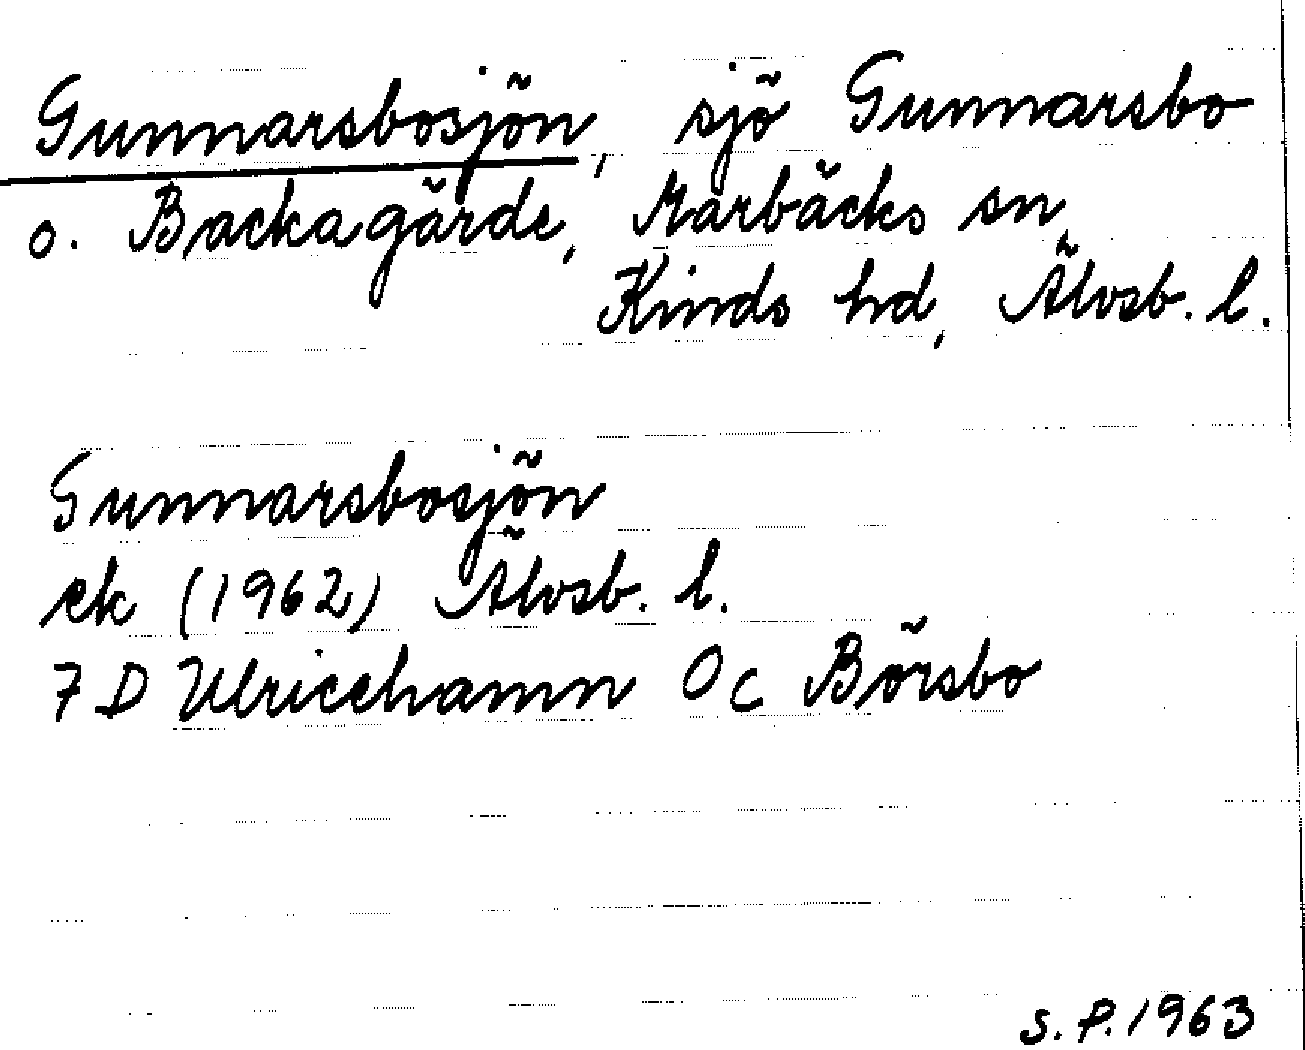 Gunnarsbosjön, sjö Gunnarsbo
o. Backagärde, Marbäcks sn,
Kinds hd, Älvsb. l.
Gunnarsbosjön
ek (1962) Älvsb. l.
7 D Ulricehamn 0c Börsbo
S.P. 1963